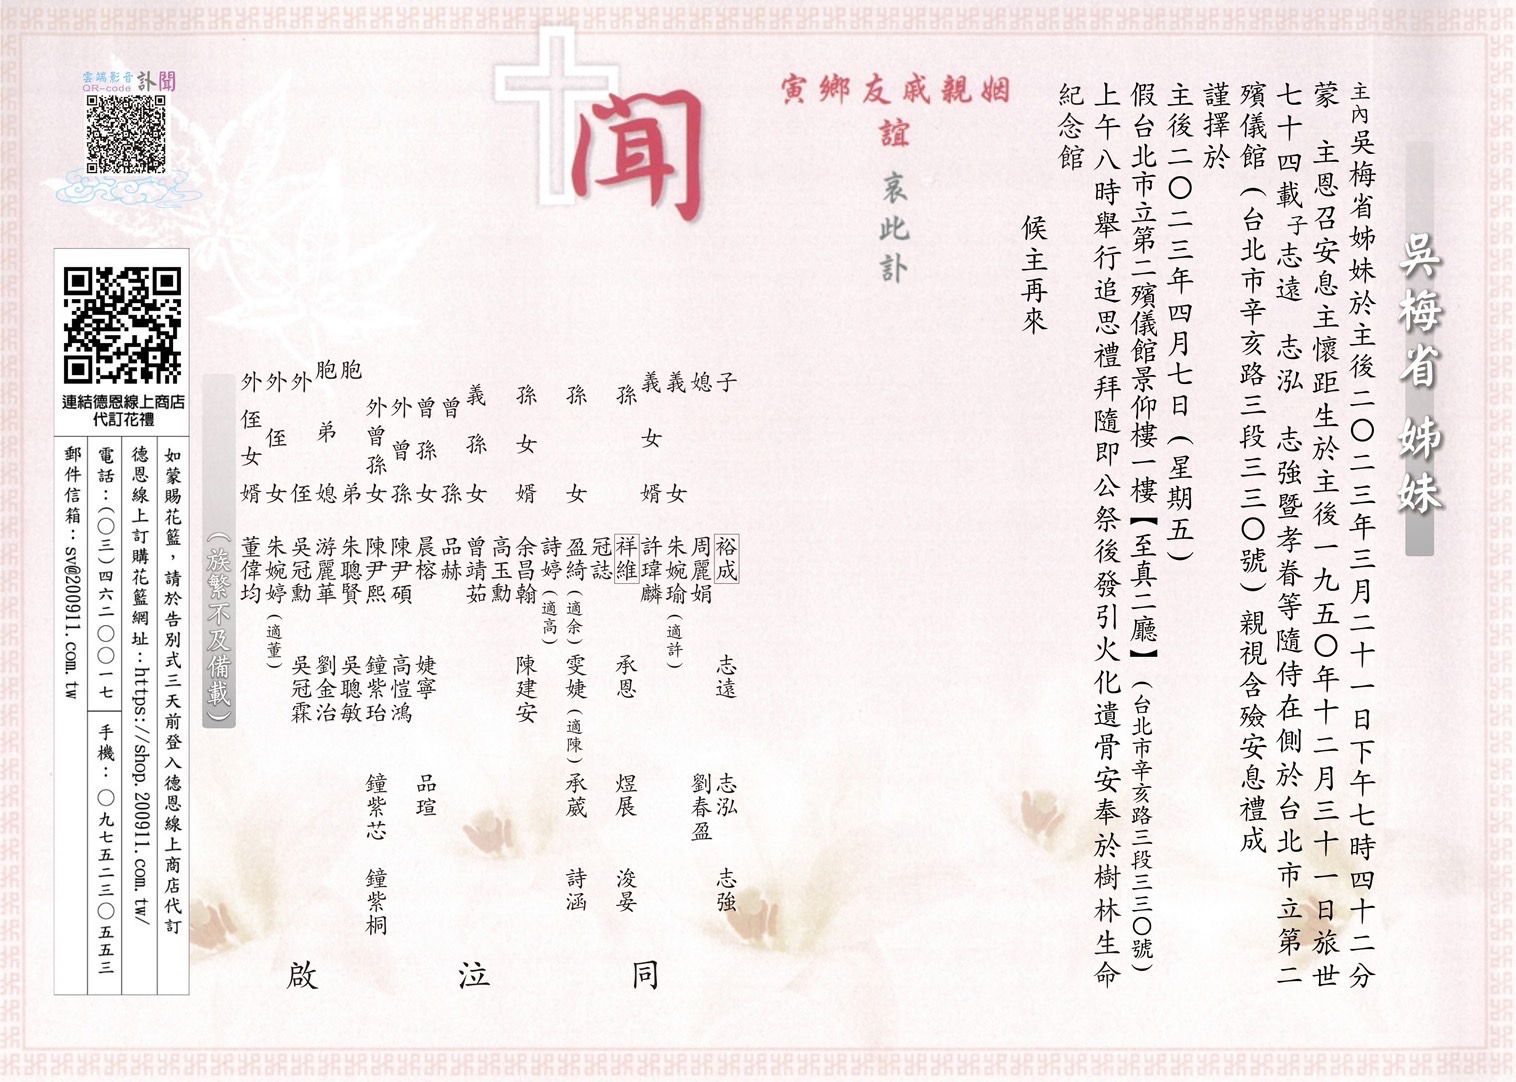 吳梅省 姊妹
主內吳梅省姊妹於主後二〇二三年三月二十一日下午七時四十二分
蒙 主恩召安息主懷距生於主後一九五〇年十二月三十一日旅世
七十四載子志遠 志泓 志強暨孝眷等隨侍在側於台北市立第二
殯儀館(台北市辛亥路三段三三〇號)親視含殮安息禮成
謹擇於
主後二〇二三年四月七日(星期五)
假台北市立第二殯儀館景仰樓一樓【至真二廳】(台北市辛亥路三段三三〇號)
上午八時舉行追思禮拜隨即公祭後發引火化遺骨安奉於樹林生命
紀念館
候主再來
姻親戚友鄉寅
誼
哀此訃
聞
子 裕成 志遠 志泓 志強
媳 周麗娟 劉春盈
義女 朱婉瑜(適許)
義女婿 許瑋麟
孫 祥維 承恩 煜展 浚晏
冠誌
孫女 盈綺(適余)雯婕(適陳)承葳 詩涵
詩婷(適高)
孫女婿 余昌翰 陳建安
高玉勳
義孫女 曾靖茹
曾孫 品赫
曾孫女 晨榕 婕寧 品瑄
外曾孫 陳尹碩 高愷鴻
外曾孫女 陳尹熙 鐘紫珆 鐘紫芯 鐘紫桐
胞弟 朱聰賢 吳聰敏
胞弟媳 游麗華 劉金治
外侄 吳冠勳 吳冠霖
外侄女 朱婉婷(適董)
外侄女婿 董偉均
同 泣 啟
(族繁不及備載)
雲端影音 訃聞
QR-code
連結德恩線上商店
代訂花禮
如蒙賜花籃，請於告別式三天前登入德恩線上商店代訂
德恩線上訂購花籃網址：https://shop.200911.com.tw/
電話：(〇三)四六二〇〇一七
手機：〇九七五二三〇五五三
郵件信箱：sv@200911.com.tw